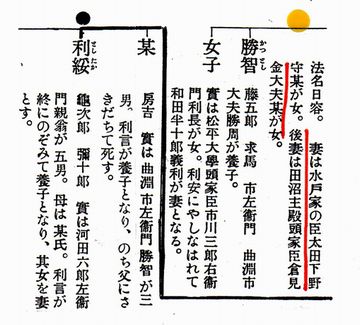 法名日容。　妻は水戸家の臣太田下野
守某が女。　後妻は田沼主殿頭家臣倉見
金大夫某が女。
勝智
かつさし
藤五郎　求馬　市左衞門　曲淵市
大夫勝周が養子。
女子
實は松平大學頭家臣市川三郎右衞
門利長が女。利安にやしなはれて
和田半十郎義利が妻となる。
某
房吉　實は曲淵市左衞門勝智が三
男、利言が養子となり、のち父にさ
きだちて死す。
利綏
としたか
龜次郎　彌十郎　實は河田六郎左衞
門親翁が五男。母は某氏。利言が
終にのぞみて養子となり、其女を妻
とす。